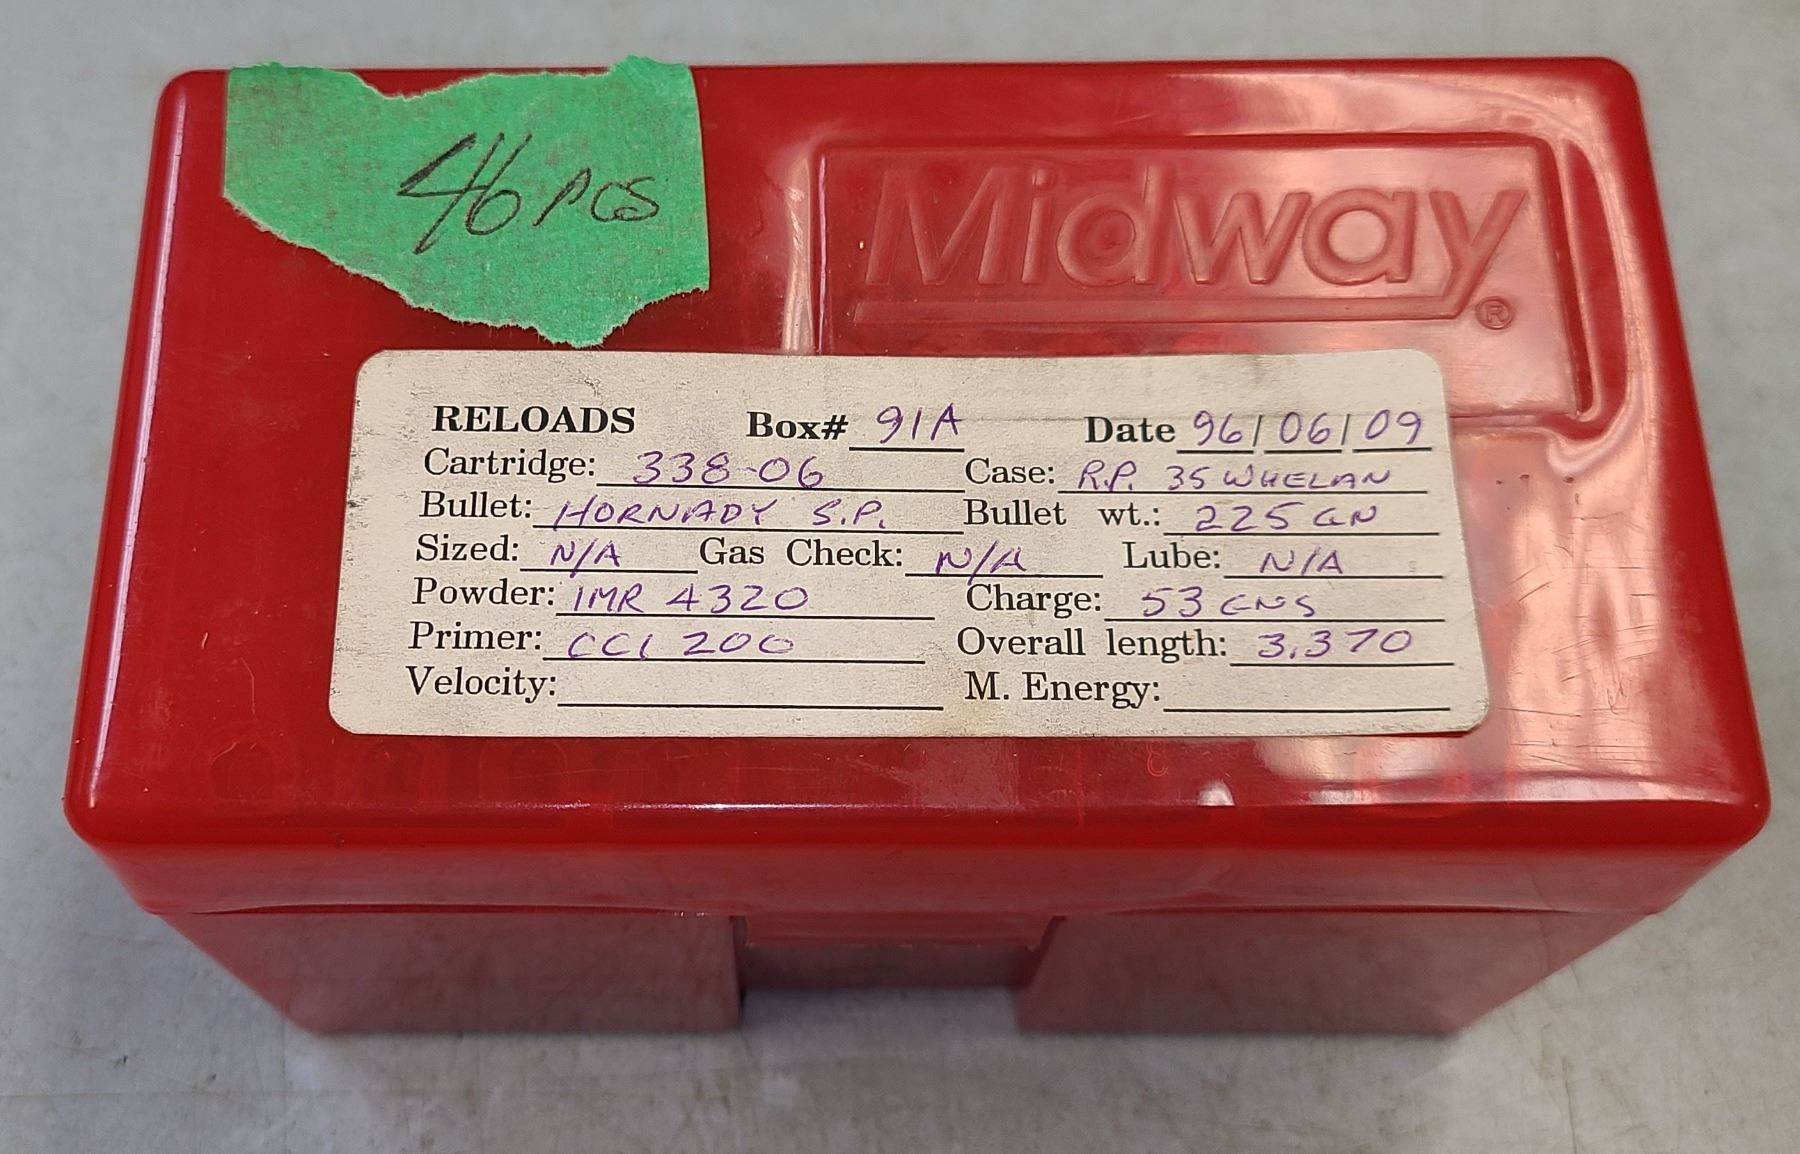 46 PCS
Midway®
RELOADS Box# 91A Date 96/06/09
Cartridge: 338-06 Case: R.P. 35 WHELAN
Bullet: HORNADY S.P. Bullet wt.: 225 GN
Sized: N/A Gas Check: N/A Lube: N/A
Powder: IMR 4320 Charge: 53 GNS
Primer: CCI 200 Overall length: 3.370
Velocity: M. Energy: